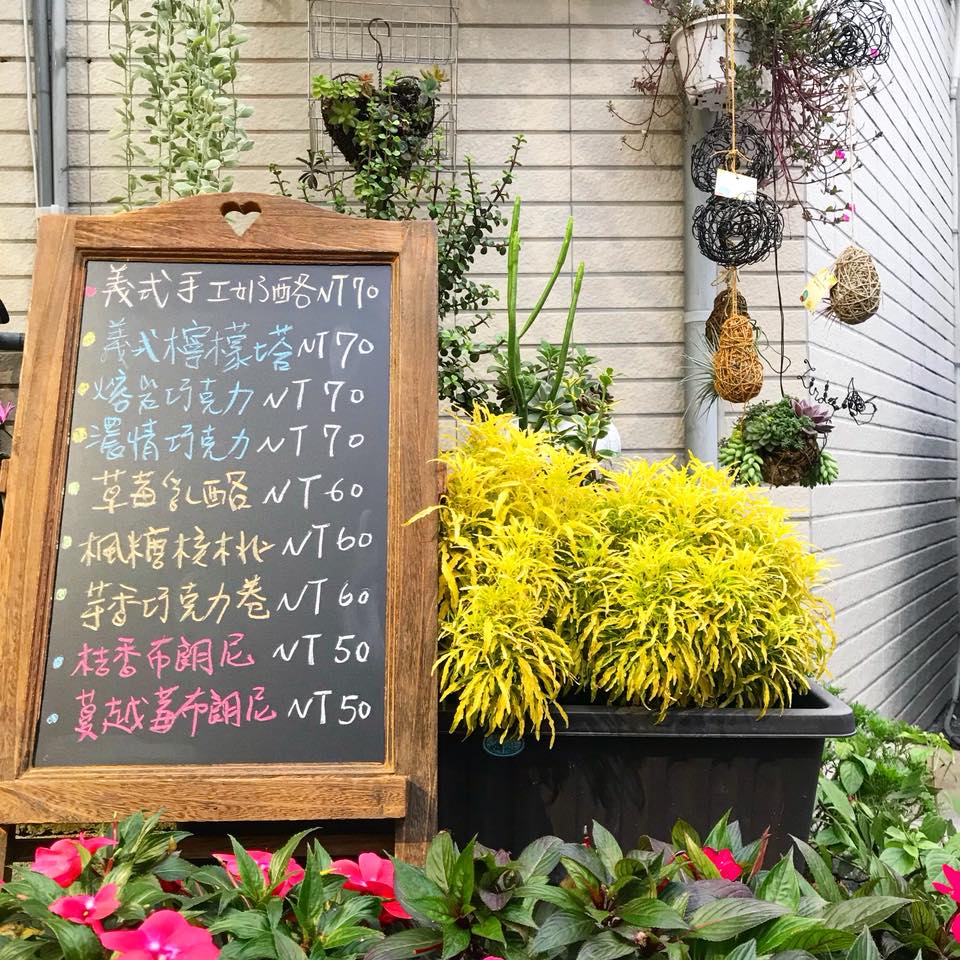 義式手工奶酪 NT70
義式檸檬塔 NT70
熔岩巧克力 NT70
濃情巧克力 NT70
草莓乳酪 NT60
楓糖核桃 NT60
芋香巧克力卷 NT60
桔香布朗尼 NT50
蔓越莓布朗尼 NT50